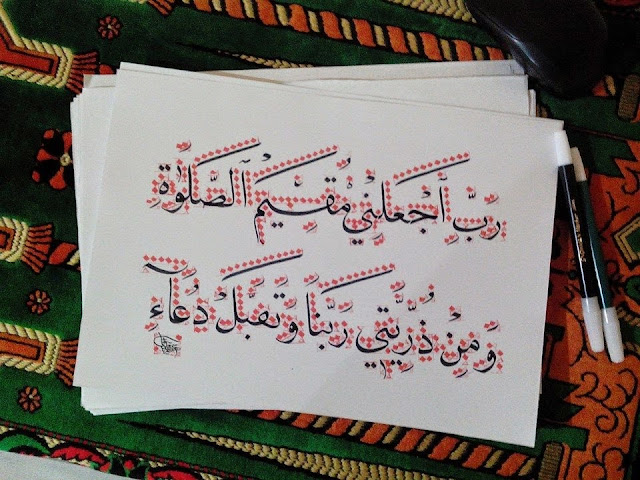 رَبِّ ٱجْعَلْنِي مُقِيْمَ ٱلصَّلَوٰةِ
وَمِنْ ذُرِّيَّتِي رَبَّنَا وَتَقَبَّلْ دُعَآءِ